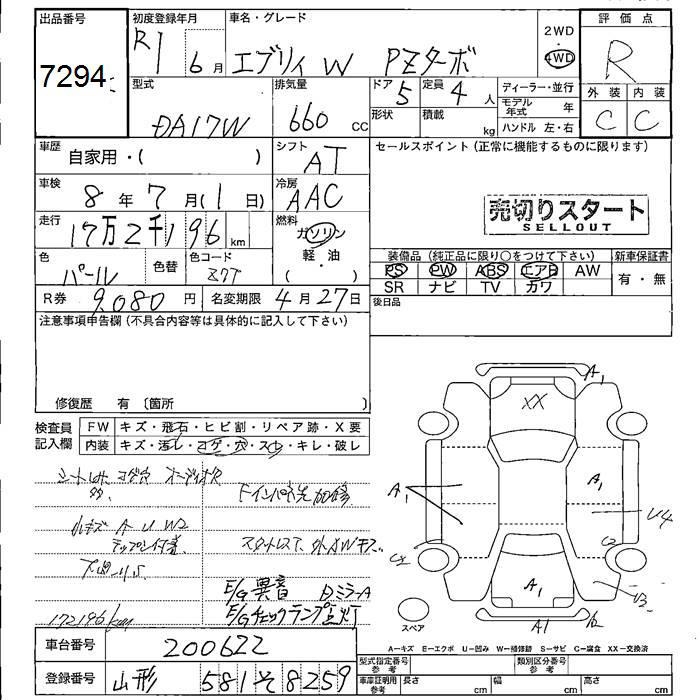 出品番号 初度登録年月 車名・グレード 2WD 評価点
7294 R1 6月 エブリイ W PZターボ 4WD R
型式 排気量 ドア 5 定員 4 人 ディーラー・並行 外装 内装
DA17W 660 CC 形状 積載 kg モデル年式 年 C C
ハンドル 左・右
車歴 自家用・( ) シフト AT セールスポイント(正常に機能するものに限ります)
車検 8年 7月(1日) 冷房 AAC
売切りスタート
SELLOUT
走行 17万2千196 km 燃料 ガソリン
軽・油
( )
色 パール 色替 色コード Z7T
装備品(純正品に限り○をつけて下さい) 新車保証書
PS PW ABS エアB AW 有・無
SR ナビ TV カワ
R券 9,080円 名変期限 4月27日 後日品
注意事項申告欄(不具合内容等は具体的に記入して下さい)
修復歴 有 〔箇所
検査員記入欄 FW キズ・飛石・ヒビ割・リペア跡・X要
内装 キズ・汚レ・コゲ・穴・スレ・キレ・破レ
Fインパネ先加修
小キズ A U W2
スタットレス 外AWキズ
E/G異音 DミラーA
E/Gチェックランプ点灯
172196km
XX A1 A1 A1 U4 C2 C2 A1 U3 A1
スペア
A-キズ E-エクボ U-凹み W-補修跡 S-サビ C-腐食 XX-交換済
車台番号 200622
登録番号 山形 581 そ 8259
型式指定番号 参考 類別区分番号 参考
車庫証明用 参考 長さ cm 幅 cm 高さ cm